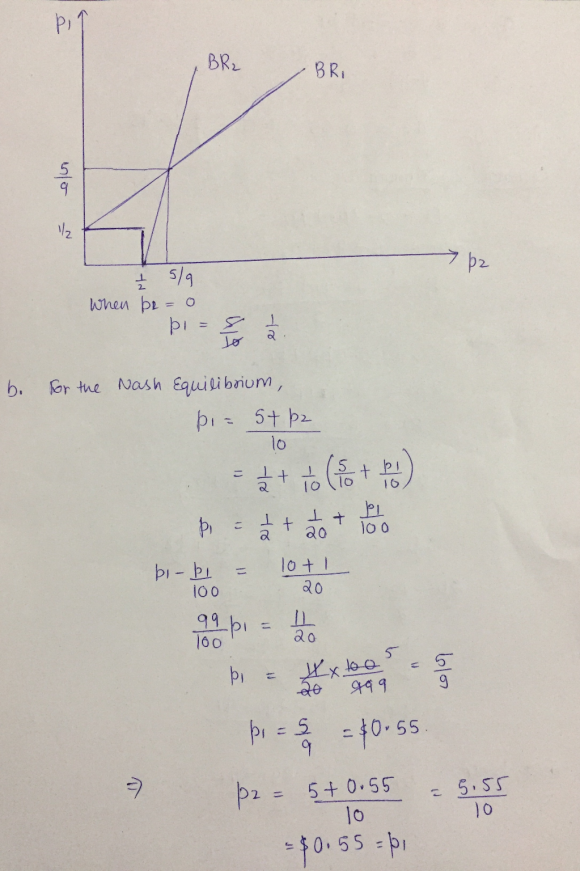 p1
BR2
BR1
5/9
1/2
1/2 5/9
p2
When p2 = 0
p1 = 5/10 1/2.
b. For the Nash Equilibrium,
p1 = (5 + p2)/10
= 1/2 + 1/10 (5/10 + p1/10)
p1 = 1/2 + 1/20 + p1/100
p1 - p1/100 = (10 + 1)/20
99/100 p1 = 11/20
p1 = 11/20 × 100/99 5 9 = 5/9
p1 = 5/9 = $0.55.
⇒ p2 = (5 + 0.55)/10 = 5.55/10
= $0.55 = p1